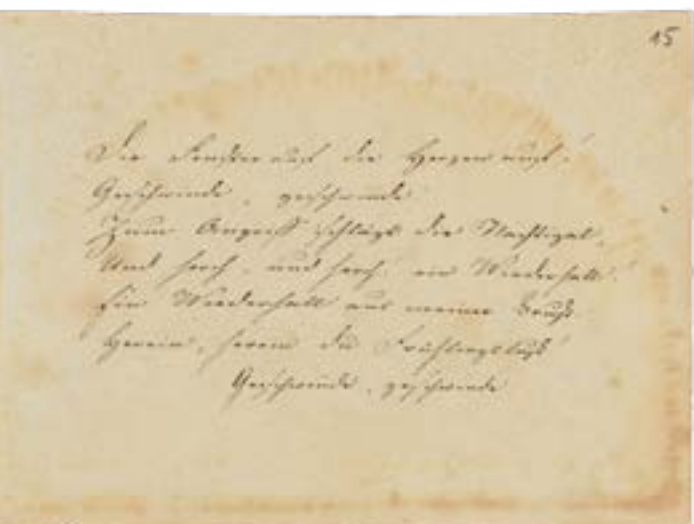 15
Die Fenster auf die Herzen auf!
Geschwinde, geschwinde
Zum Angriff schlägt die Nachtigal,
Und horch, und horch, ein Wiederhall!
Ein Wiederhall aus meiner Brust
Herein, herein du Frühlingslust!
Geschwinde, geschwinde